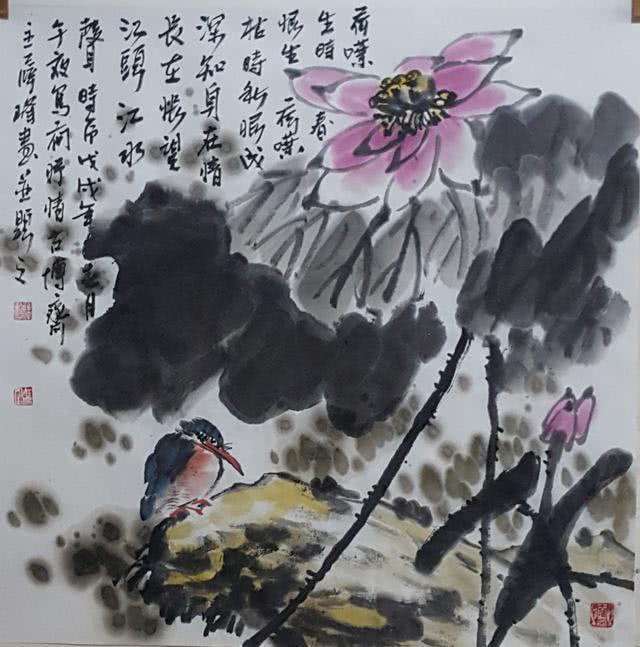 荷葉
生時春
恨生荷葉
枯時秋恨成
深知身在情
長在悵望
江頭江水
聲時戊戌年月
午夜寫荷抒情古博齋
王畫並題之